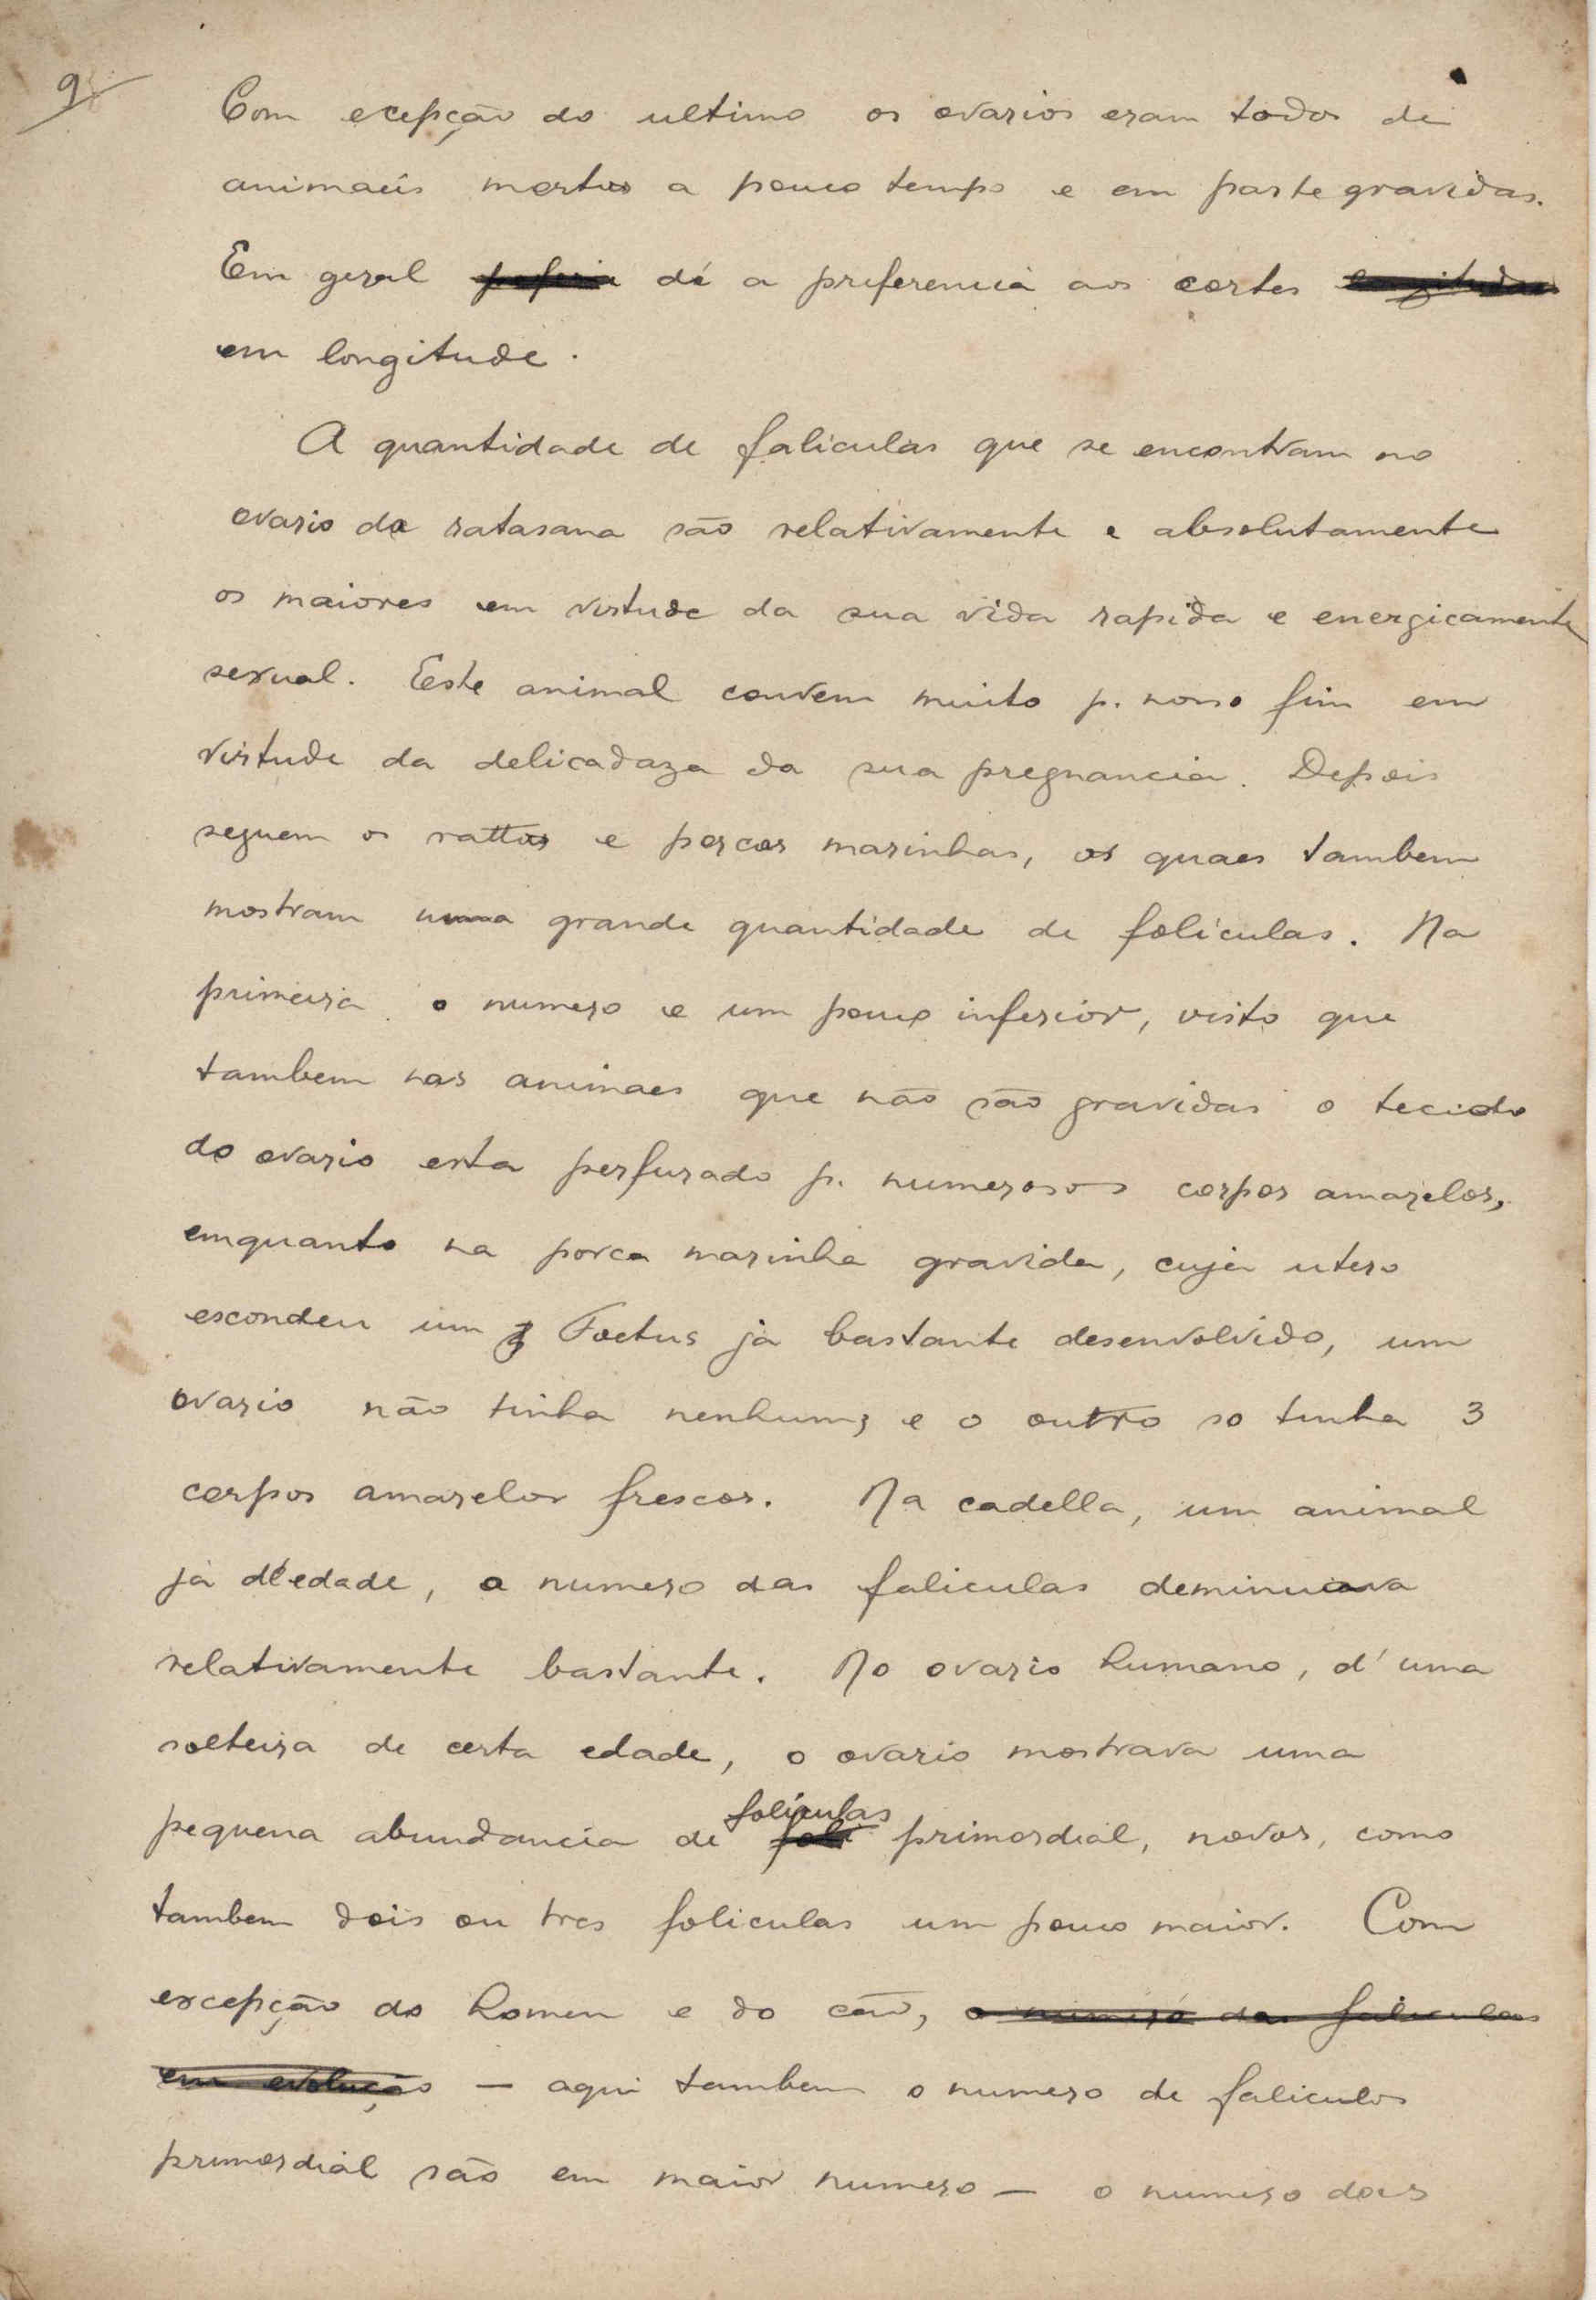 9
Com ecepção do ultimo os ovarios eram todos de
animaeis mortos a pouco tempo e em parte gravidas.
Em geral dé a preferencia aos cortes
em longitude.
A quantidade de foliculas que se encontram no
ovario da ratasana são relativamente e absolutamente
os maiores em virtude da sua vida rapida e energicamente
sexual. Este animal convem muito p. nosso fim em
virtude da delicadaza da sua pregnancia. Depois
seguem os rattos e porcos marinhos, os quaes tambem
mostram uma grande quantidade de foliculas. Na
primeira o numero e um pouco inferior, visto que
tambem nas animaes que não são gravidas o tecido
do ovario esta perfurado p. numerosos corpos amarelos,
emquanto na porca marinha gravida, cuja utero
escondeu um Foetus já bastante desenvolvido, um
ovario não tinha nenhum, e o outro so tinha 3
corpos amarelos frescos. Na cadella, um animal
já d'edade, o numero das foliculas deminuava
relativamente bastante. No ovario humano, d'uma
solteira de certa edade, o ovario mostrava uma
pequena abundancia de foliculas primordial, novos, como
tambem dois ou tres foliculas um pouco maior. Com
excepção do homen e do cão, o numero das foliculas
em evolução — aqui tambem o numero de foliculos
primordial são em maior numero — o numero dos